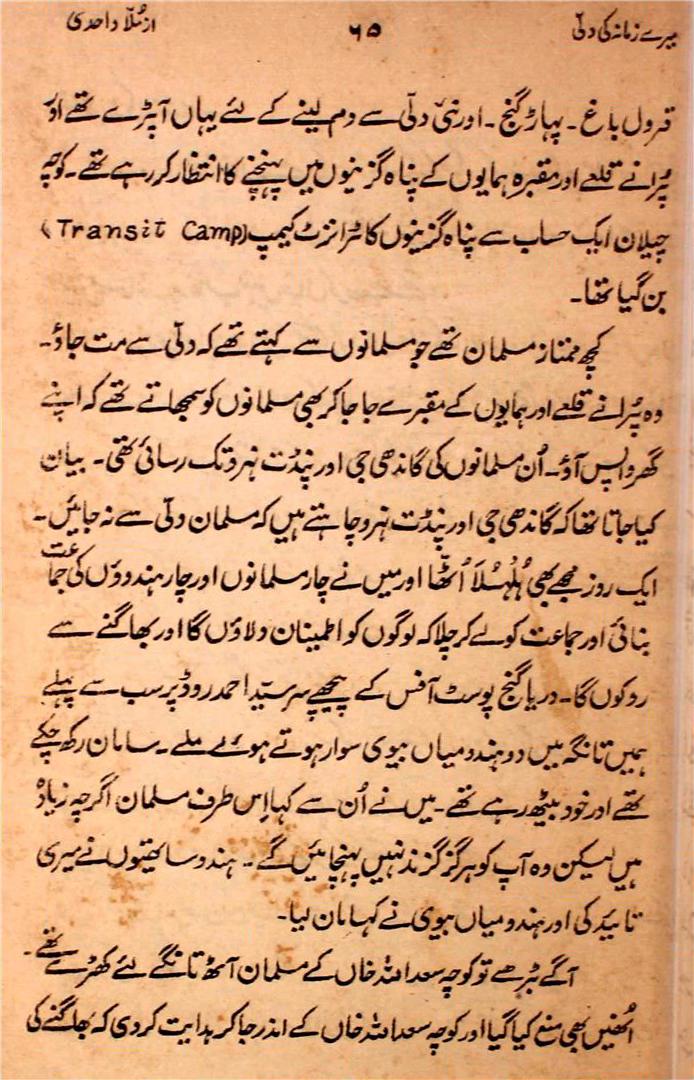 میرے زمانہ کی دلّی ۶۵ از مُلّا واحدی
قرول باغ۔ پہاڑ گنج۔ اور نئی دلّی سے دم لینے کے لئے یہاں آ پڑے تھے اور
پُرانے قلعے اور مقبرہ ہمایوں کے پناہ گزینوں میں پہنچنے کا انتظار کر رہے تھے۔ کوچہ
چیلان ایک حساب سے پناہ گزینوں کا ٹرانزٹ کیمپ (Transit Camp)
بن گیا تھا۔
کچھ ممتاز مسلمان تھے جو مسلمانوں سے کہتے تھے کہ دلّی سے مت جاؤ۔
وہ پُرانے قلعے اور ہمایوں کے مقبرے جا جا کر بھی مسلمانوں کو سمجھاتے تھے کہ اپنے
گھر واپس آؤ۔ اُن مسلمانوں کی گاندھی جی اور پنڈت نہرو تک رسائی تھی۔ بیان
کیا جاتا تھا کہ گاندھی جی اور پنڈت نہرو چاہتے ہیں کہ مسلمان دلّی سے نہ جائیں۔
ایک روز مجھے بھی ہُلہُلَا اُٹھا اور میں نے چار مسلمانوں اور چار ہندوؤں کی جماعت
بنائی اور جماعت کو لے کر چلا کہ لوگوں کو اطمینان دلاؤں گا اور بھاگنے سے
روکوں گا۔ دریا گنج پوسٹ آفس کے پیچھے سر سیّد احمد روڈ پر سب سے پہلے
ہمیں تانگہ میں دو ہندو میاں بیوی سوار ہوتے ہوئے ملے۔ سامان رکھ چکے
تھے اور خود بیٹھ رہے تھے۔ میں نے اُن سے کہا اِس طرف مسلمان اگرچہ زیادہ
ہیں لیکن وہ آپ کو ہرگز گزند نہیں پہنچائیں گے۔ ہندو ساتھیوں نے میری
تائید کی اور ہندو میاں بیوی نے کہا مان لیا۔
آگے بڑھے تو کوچہ سعد اللہ خاں کے مسلمان آٹھ تانگے لئے کھڑے تھے۔
اُنھیں بھی منع کیا گیا اور کوچہ سعد اللہ خاں کے اندر جا کر ہدایت کر دی کہ بھاگنے کی